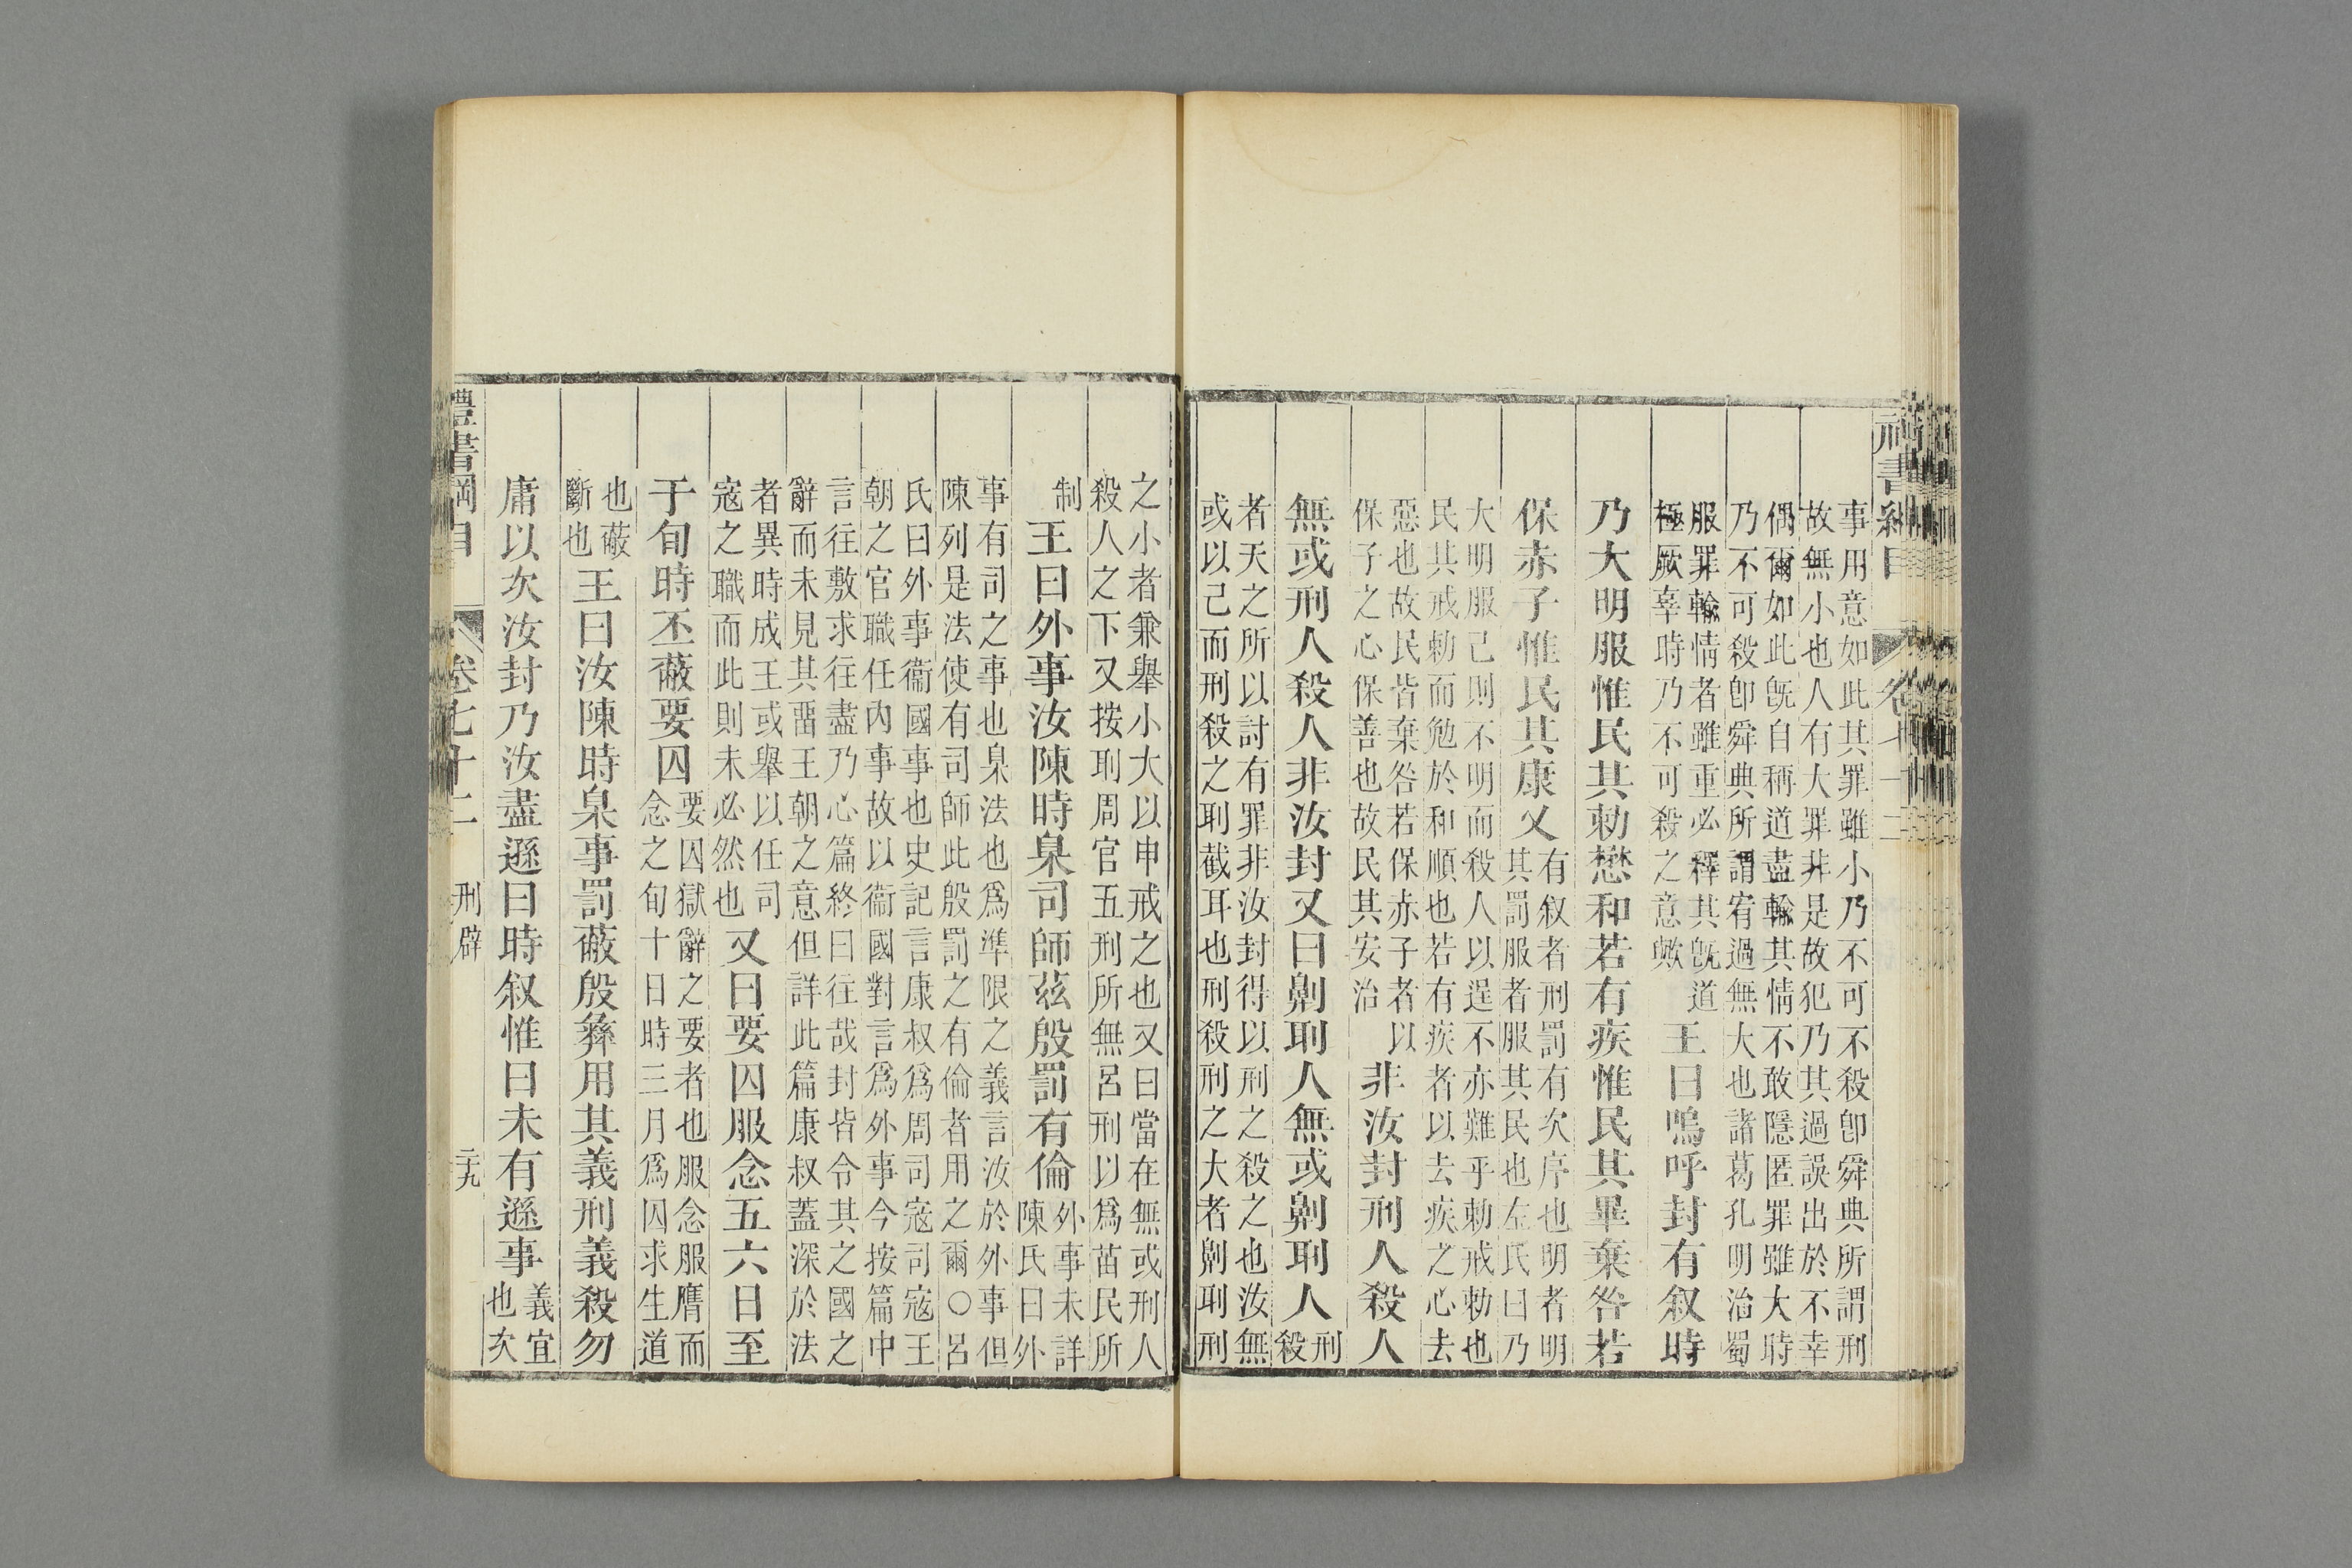 事用意如此其罪雖小乃不可不殺卽舜典所謂刑
故無小也人有大罪非是故犯乃其過誤出於不幸
偶爾如此旣自稱道盡輸其情不敢隱匿罪雖大時
乃不可殺卽舜典所謂宥過無大也諸葛孔明治蜀
服罪輸情者雖重必釋其旣道
極厥辜時乃不可殺之意歟
王曰嗚呼封有叙時
乃大明服惟民其勑懋和若有疾惟民其畢棄咎若
保赤子惟民其康乂
有叙者刑罰有次序也明者明
其罰服者服其民也左氏曰乃
大明服己則不明而殺人以逞不亦難乎勑戒勑也
民其戒勑而勉於和順也若有疾者以去疾之心去
惡也故民皆棄咎若保赤子者以
保子之心保善也故民其安治
非汝封刑人殺人
無或刑人殺人非汝封又曰劓刵人無或劓刵人
刑
殺
者天之所以討有罪非汝封得以刑之殺之也汝無
或以己而刑殺之刵截耳也刑殺刑之大者劓刵刑
之小者兼舉小大以申戒之也又曰當在無或刑人
殺人之下又按刵周官五刑所無呂刑以爲苗民所
制
王曰外事汝陳時臬司師茲殷罰有倫
外事未詳
陳氏曰外
事有司之事也臬法也爲準限之義言汝於外事但
陳列是法使有司師此殷罰之有倫者用之爾○呂
氏曰外事衞國事也史記言康叔爲周司寇司寇王
朝之官職任內事故以衞國對言爲外事今按篇中
言往敷求往盡乃心篇終曰往哉封皆令其之國之
辭而未見其畱王朝之意但詳此篇康叔蓋深於法
者異時成王或舉以任司
寇之職而此則未必然也
又曰要囚服念五六日至
于旬時丕蔽要囚
要囚獄辭之要者也服念服膺而
念之旬十日時三月爲囚求生道
也蔽
斷也
王曰汝陳時臬事罰蔽殷彝用其義刑義殺勿
庸以次汝封乃汝盡遜曰時叙惟曰未有遜事
義宜
也次
禮書綱目
卷七十二
刑辟
二十九